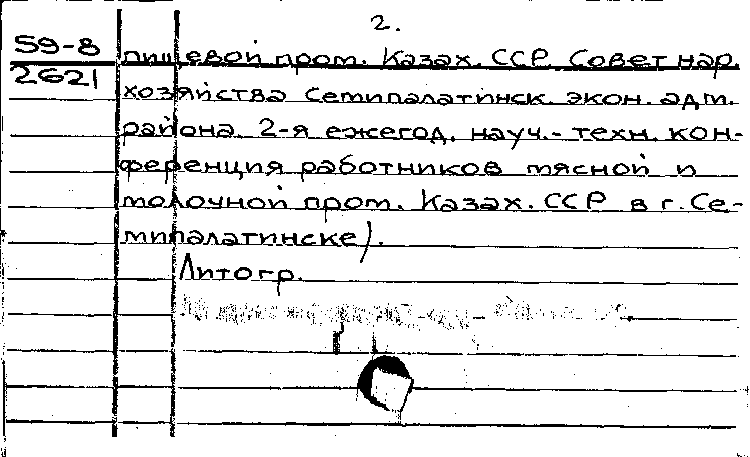 2.
59-8
2621
пищевой пром. Казах. ССР. Совет нар.
хозяйства Семипалатинск. экон. адм.
района. 2-я ежегод. науч.- техн. кон-
ференция работников мясной и
молочной пром. Казах. ССР в г. Се-
мипалатинске).
Литогр.